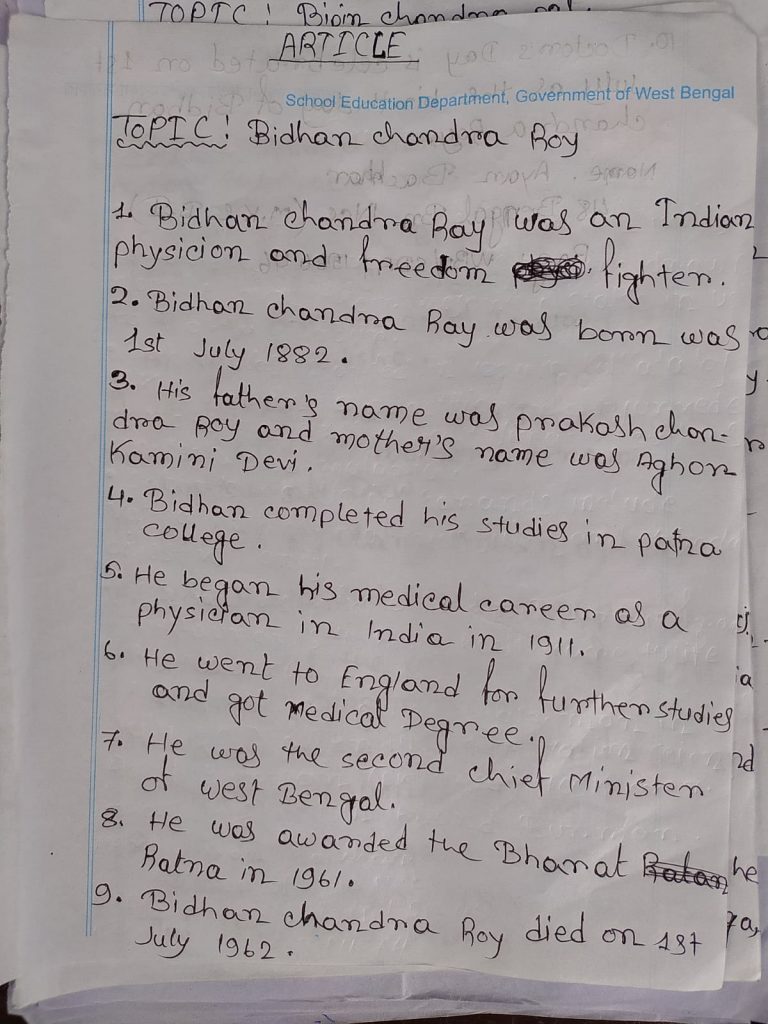 TOPIC! Bipin chandra pal.
ARTICLE
School Education Department, Government of West Bengal
TOPIC! Bidhan chandra Roy
1. Bidhan chandra Ray was an Indian
physicion and freedom fighter.
2. Bidhan chandra Ray was born was
1st July 1882.
3. His father's name was prakash chan-
dra Roy and mother's name was Aghor
Kamini Devi.
4. Bidhan completed his studies in patna
college.
5. He began his medical career as a
physician in India in 1911.
6. He went to England for further studies
and got Medical Degree.
7. He was the second chief Minister
of west Bengal.
8. He was awarded the Bharat
Ratna in 1961.
9. Bidhan chandra Roy died on 1st
July 1962.